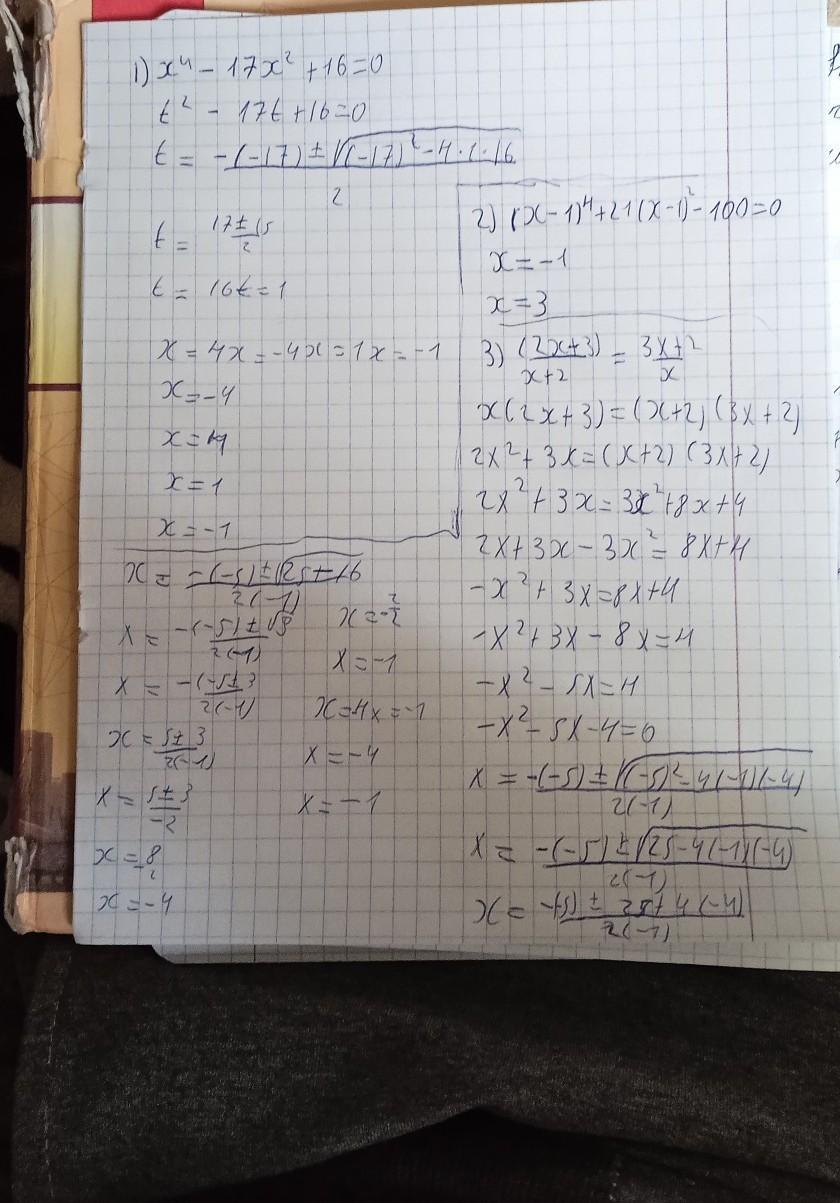 1) x⁴ - 17x² + 16 = 0
t² - 17t + 16 = 0
t = -(-17) ± √(-17)² - 4·1·16
2
t = 17 ± 15
2
t = 16 t = 1
x = 4 x = -4 x = 1 x = -1
x = -4
x = 4
x = 1
x = -1
2) (x-1)⁴ + 21(x-1)² - 100 = 0
x = -1
x = 3
3) (2x+3) = 3x+2
x+2 x
x(2x+3) = (x+2) (3x+2)
2x² + 3x = (x+2) (3x+2)
2x² + 3x = 3x² + 8x + 4
2x + 3x - 3x² = 8x + 4
-x² + 3x = 8x + 4
-x² + 3x - 8x = 4
-x² - 5x = 4
-x² - 5x - 4 = 0
x = -(-5) ± √(-5)² - 4(-1)(-4)
2(-1)
x = -(-5) ± √25 - 4(-1)(-4)
2(-1)
x = -(-5) ± 25 + 4(-4)
2(-1)
x = -(-5) ± √25 + 16
2(-1)
x = -(-5) ± √9
2(-1)
x = -(-5 ± 3
2(-1)
x = 5 ± 3
2(-1)
x = 5 ± 3
-2
x = 8
-2
x = -4
x = -2
2
x = -1
x = 4 x = -1
x = -4
x = -1